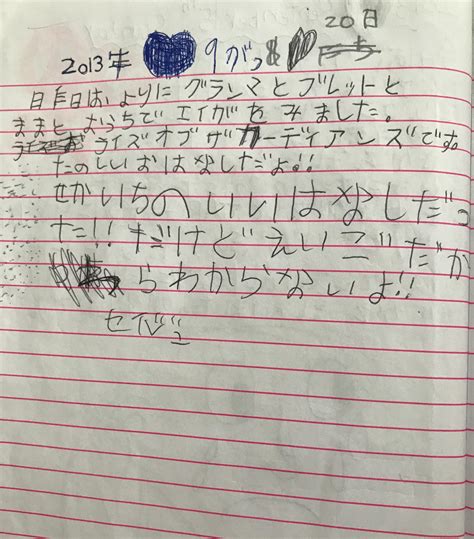 20日
2013年 9がつ
昨日は、よりにグランマとブレットと
ままと おうちで エイガをみました。
ライズオブザガーディアンズです。
たのしいおはなしだよ!!
せかいちのいいはなしだっ
た!! だけどえいごだか
らわからないよ!!
セイジ